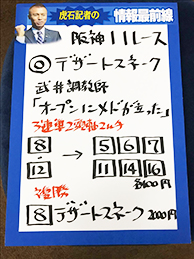 虎石記者の
情報最前線
阪神11レース
◎デザートスネーク
武井調教師
「オープンにメドが立った」
3連単2頭軸マルチ
8 → 5 6 7
12 11 14 16
各100円
複勝
8 デザートスネーク 2000円